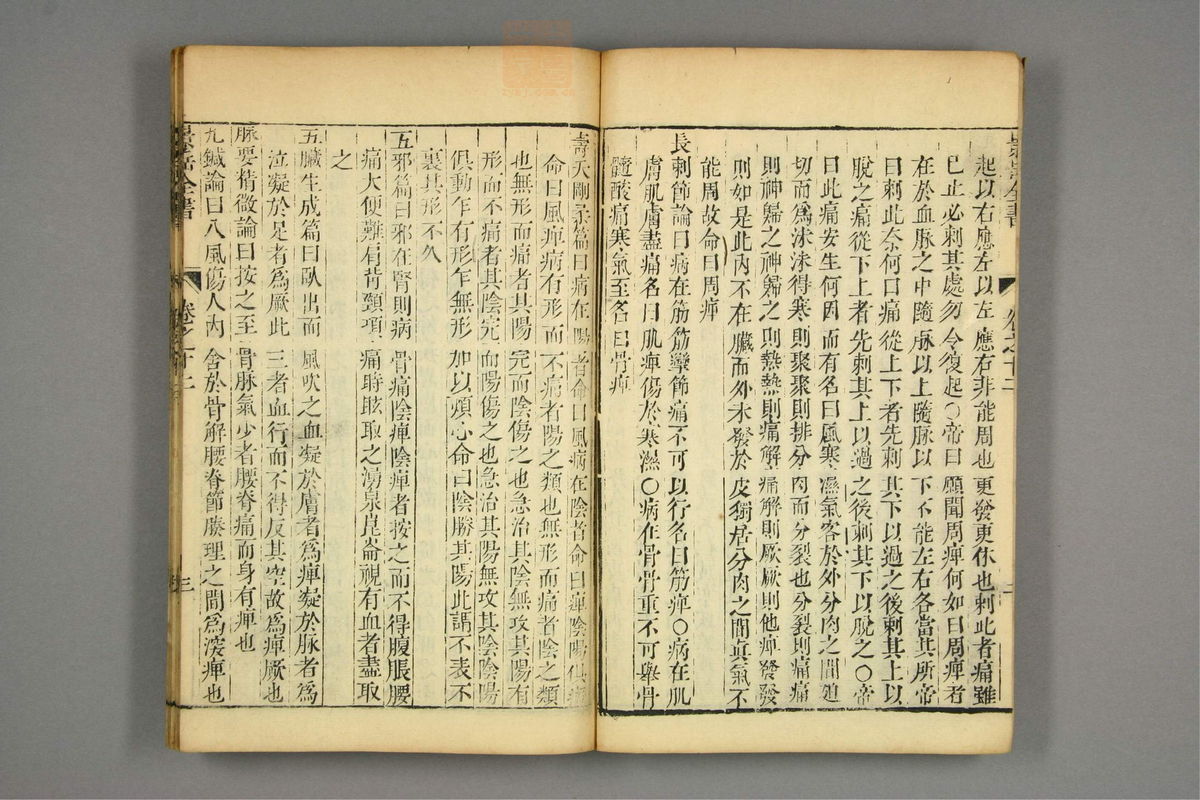 起以右應左以左應右非能周也更發更休也刺此者痛雖
已止必刺其處勿令復起〇帝曰願聞周痺何如曰周痺者
在於血脉之中隨脉以上隨脉以下不能左右各當其所帝
曰刺此奈何曰痛從上下者先刺其下以過之後刺其上以
脫之痛從下上者先刺其上以過之後刺其下以脫之〇帝
曰此痛安生何因而有名曰風寒濕氣客於外分肉之間迫
切而為沫沫得寒則聚聚則排分肉而分裂也分裂則痛痛
則神歸之神歸之則熱熱則痛解痛解則厥厥則他痺發發
則如是此內不在臟而外未發於皮獨居分肉之間眞氣不
能周故命曰周痺
長刺節論曰病在筋筋攣節痛不可以行名曰筋痺〇病在肌
膚肌膚盡痛名曰肌痺傷於寒濕〇病在骨骨重不可舉骨
髓酸痛寒氣至名曰骨痺
壽夭剛柔篇曰病在陽者命曰風病在陰者命曰痺陰陽俱病
命曰風痺病有形而不痛者陽之類也無形而痛者陰之類
也無形而痛者其陽完而陰傷之也急治其陰無攻其陽有
形而不痛者其陰完而陽傷之也急治其陽無攻其陰陰陽
俱動乍有形乍無形加以煩心命曰陰勝其陽此謂不表不
裏其形不久
五邪篇曰邪在腎則病骨痛陰痺陰痺者按之而不得腹脹腰
痛大便難肩背頸項痛時眩取之湧泉崑崙視有血者盡取
之
五臟生成篇曰臥出而風吹之血凝於膚者為痺凝於脉者為
泣凝於足者為厥此三者血行而不得反其空故為痺厥也
脉要精微論曰按之至骨脉氣少者腰脊痛而身有痺也
九鍼論曰八風傷人內舍於骨解腰脊節腠理之間為深痺也
景岳全書 卷之十二 三